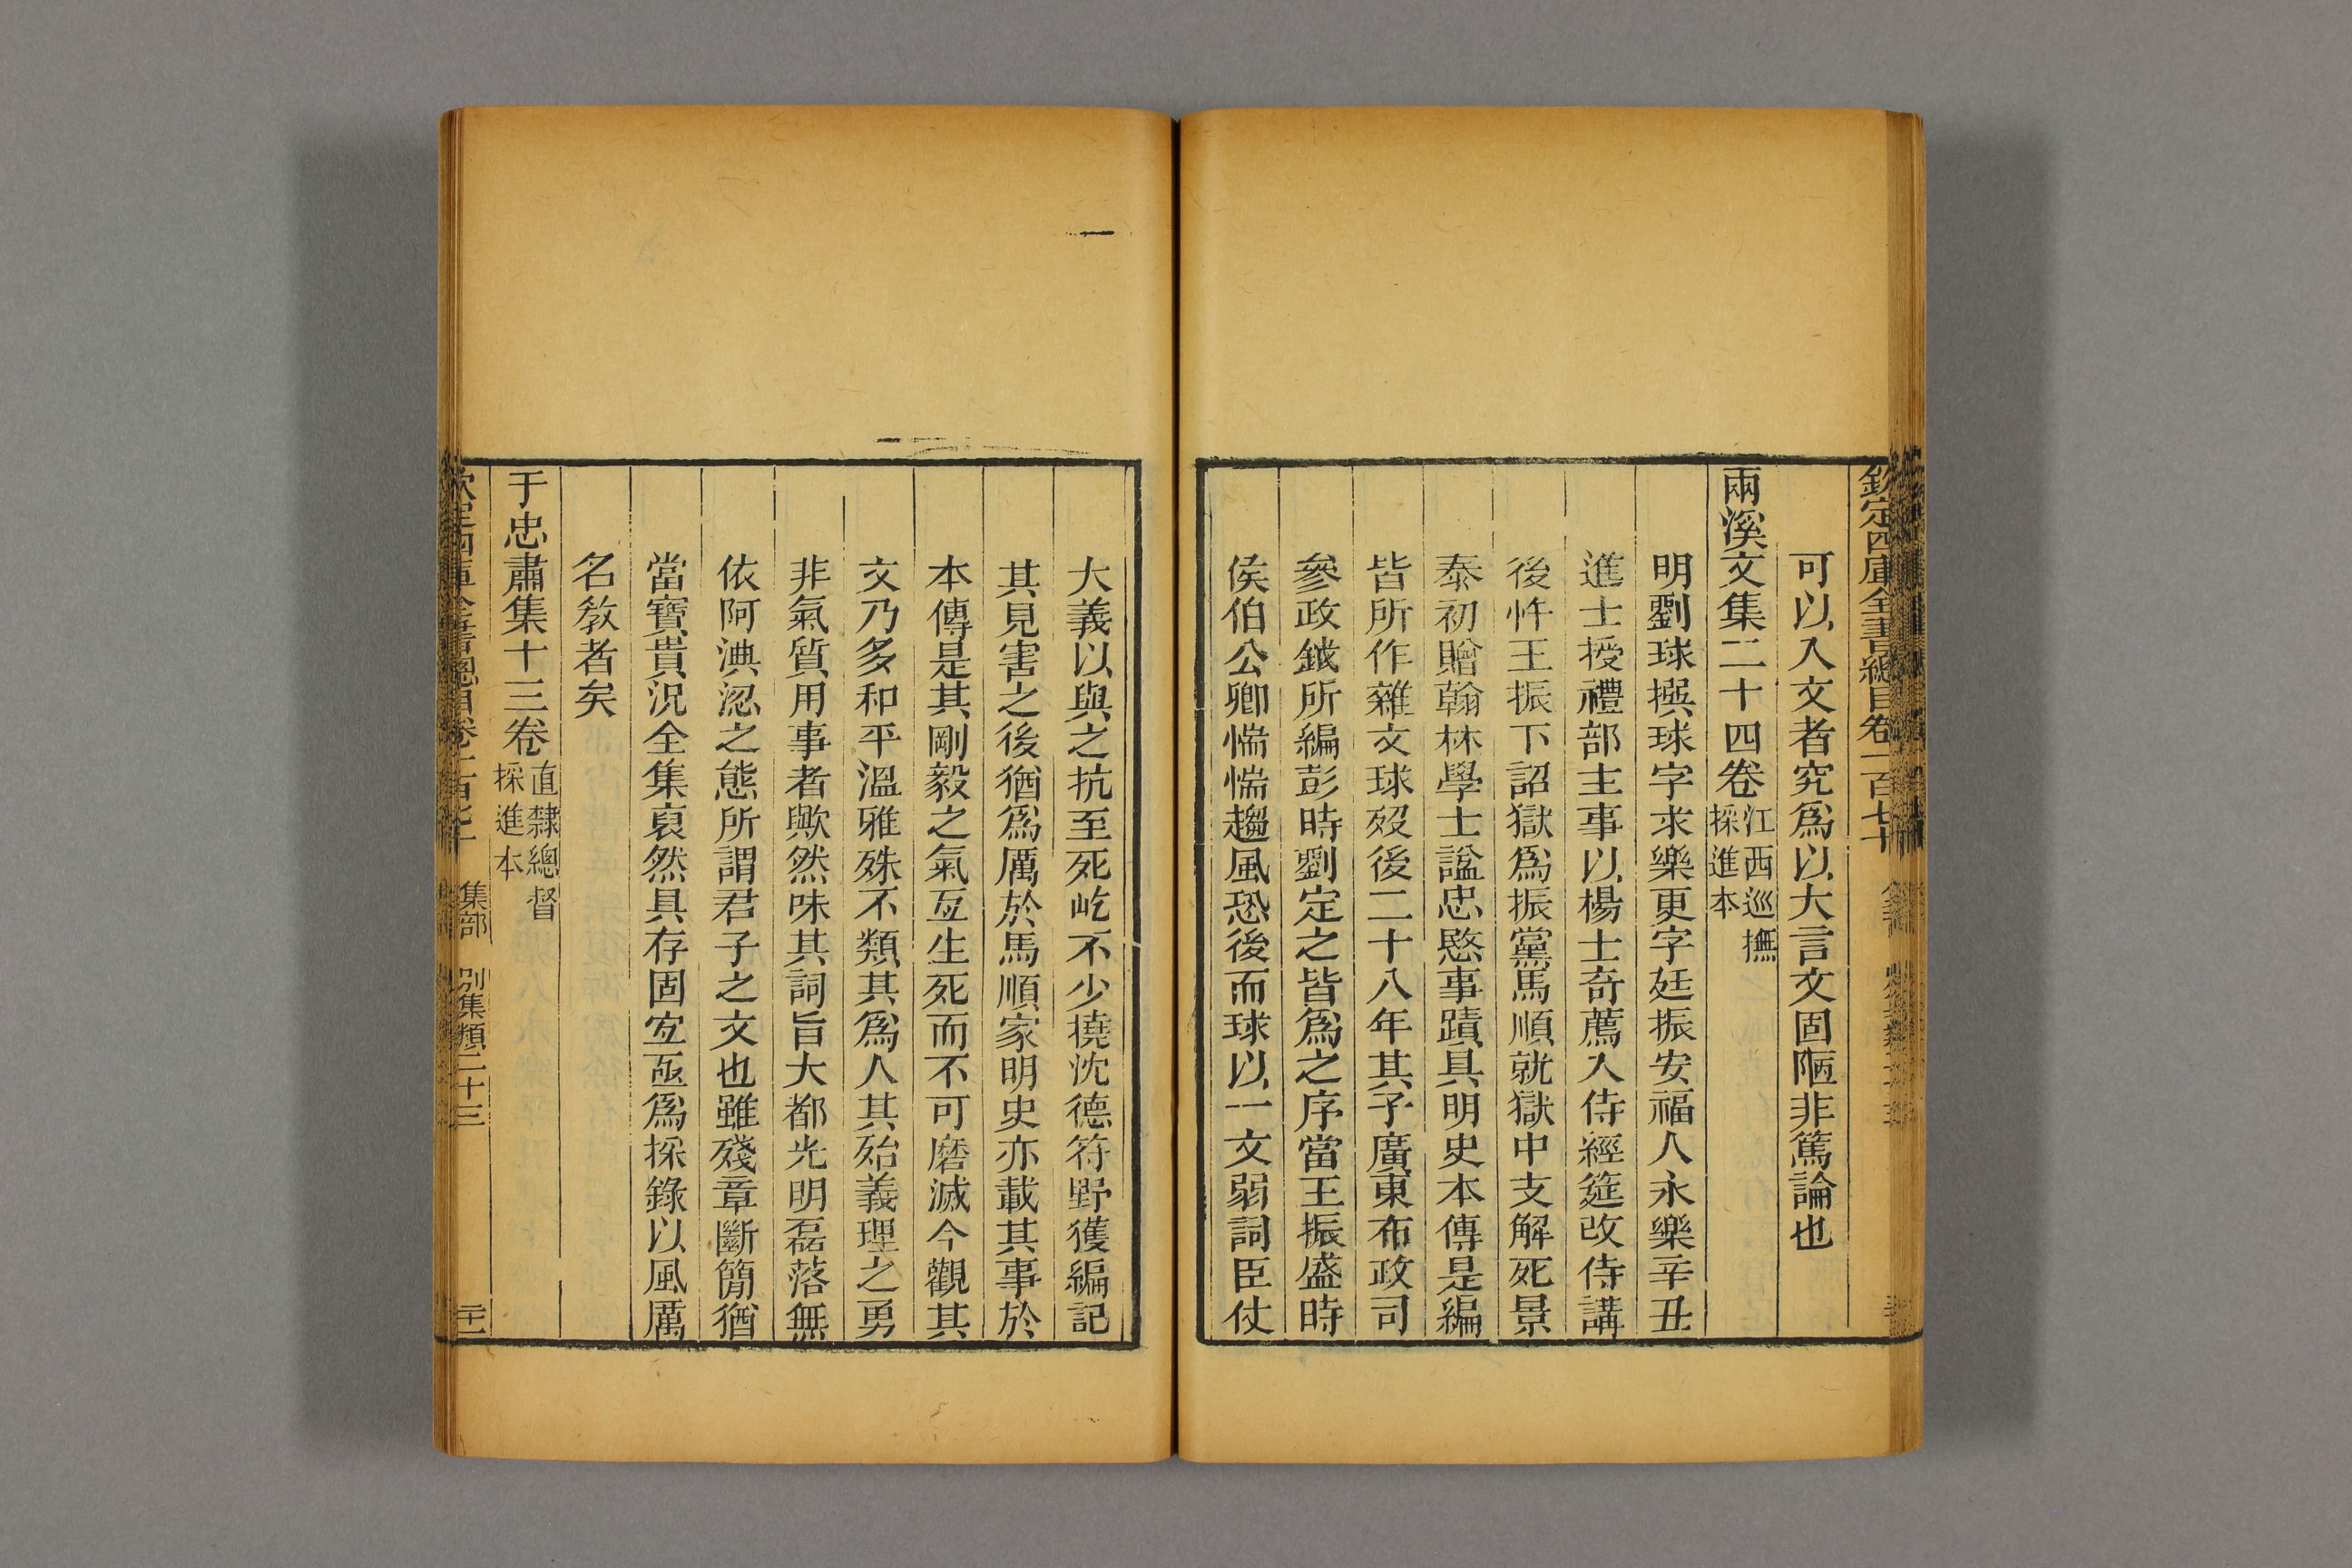 欽定四庫全書總目卷一百七十
可以入文者究爲以大言文固陋非篤論也
兩溪文集二十四卷江西巡撫採進本
明劉球撰球字求樂更字廷振安福人永樂辛丑
進士授禮部主事以楊士奇薦入侍經筵改侍講
後忤王振下詔獄爲振黨馬順就獄中支解死景
泰初贈翰林學士諡忠愍事蹟具明史本傳是編
皆所作雜文球歿後二十八年其子廣東布政司
參政鉞所編彭時劉定之皆爲之序當王振盛時
侯伯公卿惴惴趨風恐後而球以一文弱詞臣仗
大義以與之抗至死屹不少撓沈德符野獲編記
其見害之後猶爲厲於馬順家明史亦載其事於
本傳是其剛毅之氣亙生死而不可磨滅今觀其
文乃多和平溫雅殊不類其爲人其殆義理之勇
非氣質用事者歟然味其詞旨大都光明磊落無
依阿淟涊之態所謂君子之文也雖殘章斷簡猶
當寶貴況全集裒然具存固宜亟爲採錄以風厲
名教者矣
于忠肅集十三卷直隸總督採進本
欽定四庫全書總目卷一百七十 集部 別集類二十三 二十一